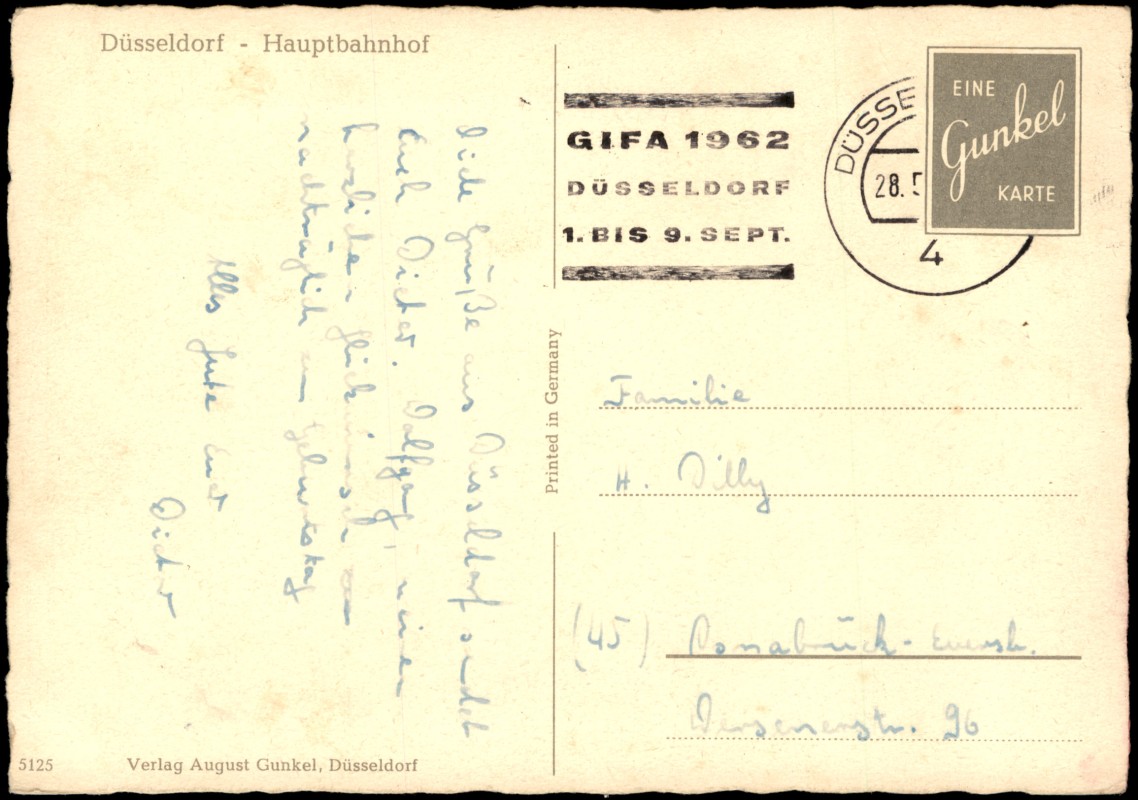 Düsseldorf - Hauptbahnhof
GIFA 1962
DÜSSELDORF
1. BIS 9. SEPT.
DÜSSE
28. 5
4
EINE
Gunkel
KARTE
Viele Grüße aus Düsseldorf sendet
Euch Dieter. Wolfgang, meinen
herzlichen Glückwunsch
nachträglich zum Geburtstag
Alles Gute euer
Dieter
Printed in Germany
Familie
H. Dilly
(45) Osnabrück-
96
5125
Verlag August Gunkel, Düsseldorf